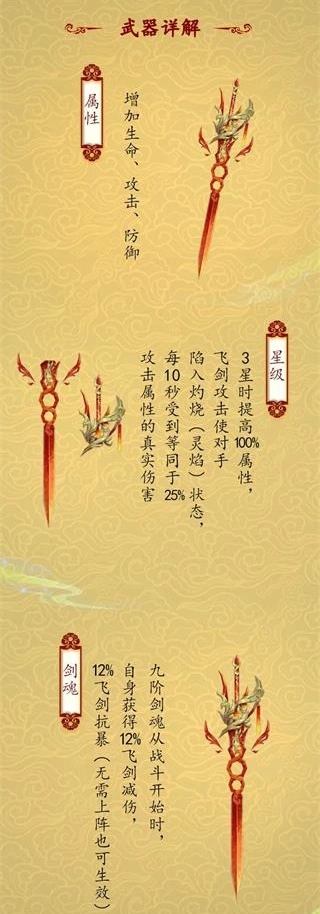 武器详解
属性
增加生命、攻击、防御
星级
3星时提高100%属性，
飞剑攻击使对手
陷入灼烧（灵焰）状态，
每10秒受到等同于
攻击属性的真实伤害25%
剑魂
九阶剑魂从战斗开始时，
自身获得12%飞剑减伤，
12%飞剑抗暴（无需上阵也可生效）